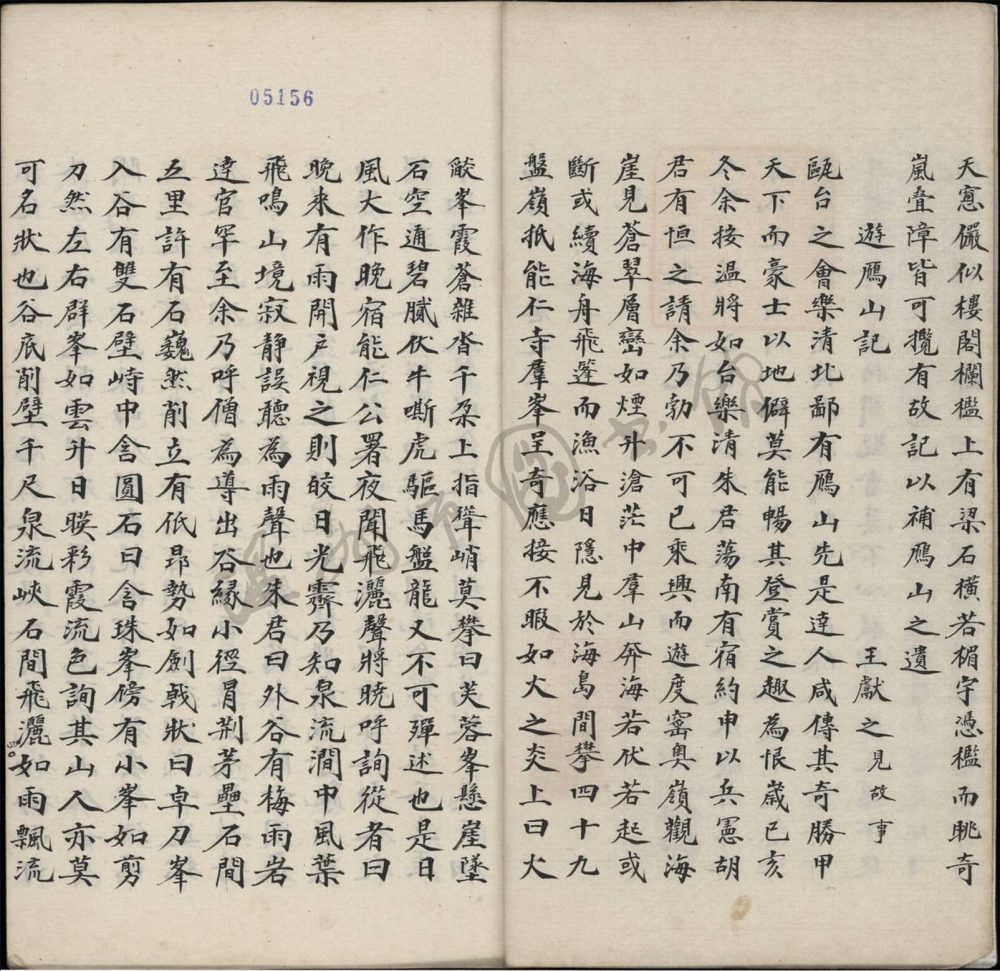 天窻儼似樓閣欄檻上有梁石橫若楣宇憑檻而眺奇
嵐叠障皆可攬有故記以補鴈山之遺
遊鴈山記 王獻之見故事
甌台之會樂清北鄙有鴈山先是達人咸傳其奇勝甲
天下而豪士以地僻莫能暢其登賞之趣為恨歲已亥
冬余按溫將如台樂清朱君蕩南有宿約申以兵憲胡
君有恒之請余乃勃不可已乘興而遊度窰奥嶺觀海
崖見蒼翠層巒如煙升滄茫中羣山奔海若伏若起或
斷或續海舟飛篷而漁浴日隱見於海島間攀四十九
盤嶺抵能仁寺羣峯呈奇應接不暇如火之炎上曰火
燄峯霞蒼雜沓千朶上指聳峭莫攀曰芙蓉峯懸崖墜
石空通碧膩伏牛嘶虎驅馬盤龍又不可殫述也是日
風大作晚宿能仁公署夜聞飛灑聲將曉呼詢從者曰
晚來有雨開户視之則皎日光霽乃知泉流澗中風葉
飛鳴山境寂静誤聽為雨聲也朱君曰外谷有梅雨岩
達官罕至余乃呼僧為導出谷緣小徑冒荆茅壘石間
五里許有石巍然削立有低昂勢如劍戟狀曰卓刀峯
入谷有雙石壁峙中含圓石曰含珠峯傍有小峯如剪
刀然左右群峯如雲升日暎彩霞流色詢其山人亦莫
可名狀也谷底削壁千尺泉流峽石間飛灑如雨飄流
05156
溫州市圖書館